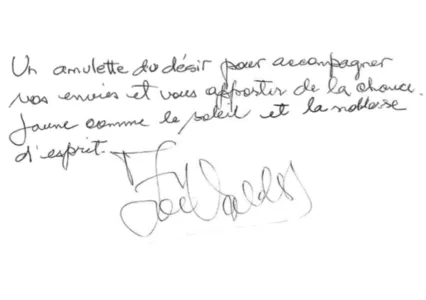 Un amulette du désir pour accompagner
vos envies et vous apporter de la chance.
Jaune comme le soleil et la noblesse
d'esprit.